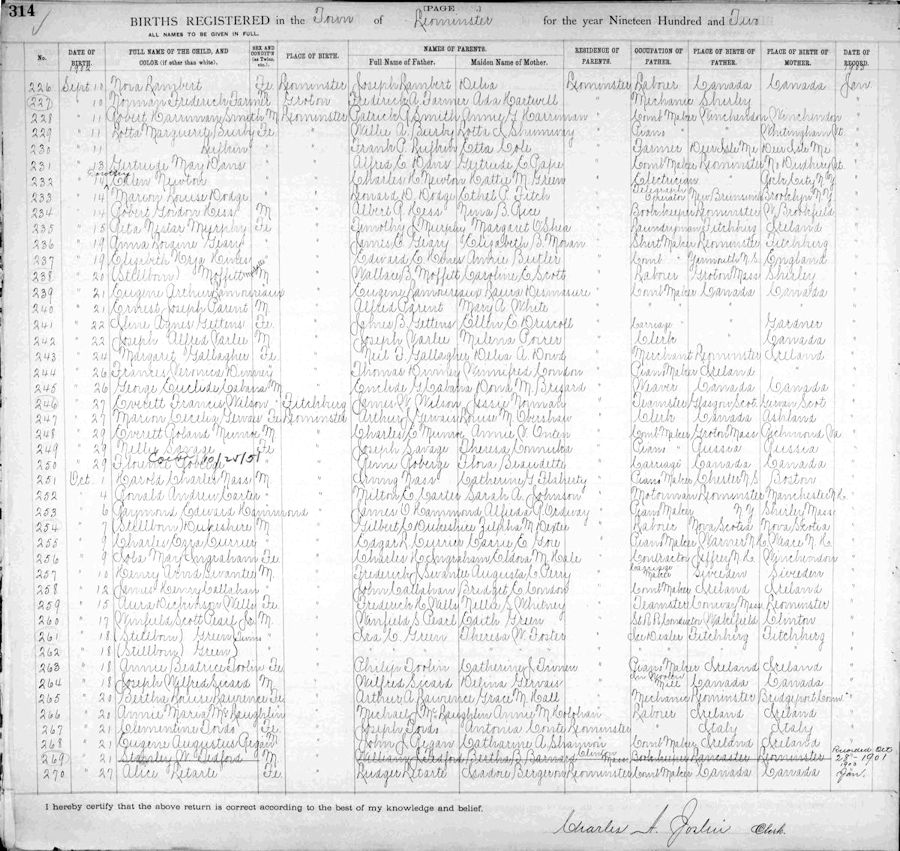 314
PAGE
BIRTHS REGISTERED in the Town of Leominster for the year Nineteen Hundred and Two
ALL NAMES TO BE GIVEN IN FULL.
No. DATE OF BIRTH. FULL NAME OF THE CHILD, AND COLOR (if other than white). SEX AND CONDIT'N (as Twins, etc.) PLACE OF BIRTH. NAMES OF PARENTS. Full Name of Father. Maiden Name of Mother. RESIDENCE OF PARENTS. OCCUPATION OF FATHER. PLACE OF BIRTH OF FATHER. PLACE OF BIRTH OF MOTHER. DATE OF RECORD.
1902 1903
226 Sept 10 Nora Lambert Fe Leominster Joseph Lambert Delia Leominster Laborer Canada Canada Jan
227 " 10 Norman Frederick Farmer M Groton Frederick A Farmer Ada Hartwell Mechanic Shirley
228 " 11 Robert Harriman Smith M Leominster Patrick J Smith Annie G Harriman Comb Maker Winchendon Winchendon
229 " 11 Lotta Marguerite Busby Fe Willie A Busby Lotta Shumway Piano Whitingham Vt
230 " 11 Frank P Etta Cole Farmer Deer Isle Me Deer Isle Me
231 " 13 Gertrude May Davis Alfred E Davis Gertrude E Page Comb Maker Leominster
232 " 14 Dorothy Ellen Newton Charles H Newton Hattie M Green Electrician
233 " 4 Marion Louise Dodge Leonard D Dodge Ethel P Fitch Telegraph Operator New Brunswick Brooklyn N.Y.
234 " 14 Robert Gordon Hess M Albert G Hess Nina B Rice Bookkeeper Leominster W Brookfield
235 " 15 Rita Murphy Fe Timothy J Murphy Margaret O'Shea Laundryman Fitchburg Ireland
236 " 19 Anna Geary James E Geary Elizabeth B Moran Shirt Maker Leominster Fitchburg
237 " 19 Elizabeth Hines Edward E Hines Annie Butler Comb Yarmouth N.S. England
238 " 20 (Stillborn) Moffitt Wallace B Moffitt Caroline E Scott Laborer Groton Mass Shirley
239 " 21 Eugene Arthur Lamoureaux Eugene Lamoureaux Laura Desmasure Comb Maker Canada Canada
240 " 21 Ernest Joseph Parent M Alfred Parent Mary A White
241 " 22 Agnes Gettens Fe James B Gettens Ellen E Driscoll Carriage Gardner
242 " 22 Joseph Alfred M Joseph Clerk Canada
243 " 24 Margaret Gallagher Fe Neil F Gallagher Delia A Dowd Merchant Leominster Ireland
244 " 26 Frances Veronica Thomas Winnifred Condon Piano Maker Ireland
245 " 26 George Euclide Cabana M Euclide G Cabana Dona M Weaver Canada Canada
246 " 27 Everett Francis Wilson Fitchburg James W Wilson Jessie Norman Teamster Glasgow Scot Girvan Scot
247 " 27 Marion Cecelia Gervais Fe Leominster Arthur J Gervais Louise M Clerk Canada Ashland
248 " 29 Everett Roland Munroe M Charles E Munroe Annie W Comb Maker Groton Mass Richmond Va
249 " 29 Nellie Savage Fe Joseph Savage Theresa Piano Russia Russia
250 " 29 Florence Roberge 10/25/51 Roberge Flora Beaudette Carriage Canada Canada
251 Oct. 1 Harold Charles Nass M Irving Nass Catherine G Flaherty Piano Maker Chester N.S Boston
252 " 4 Ronald Andrew Carter Milton E Carter Sarah A Johnson Motorman Leominster Manchester N.H.
253 " 6 Raymond Edward Hammond James O Hammond Alfreda G Ordway Piano Maker N.Y Shirley Mass
254 " 7 (Stillborn) Dukeshire M Gilbert L Dukeshire Zilpha M Laborer Nova Scotia Nova Scotia
255 " 9 Charles Ezra Currier Edgar R Currier Carrie E Gore Piano Maker Warner N.H Weare N.H.
256 " 9 May Ingraham Fe Charles H Ingraham Eldora M Hale Contractor Jaffrey N.H. Winchendon
257 " 10 Henry Levanter M. Frederick Levanter Augusta C Perry Carriage Maker Sweden Sweden
258 " 12 James Henry Callahan John Callahan Bridget E Condon Comb Maker Ireland Ireland
259 " 15 Aura Dickinson Wells Fe Frederick H Wells Nellie S Whitney Teamster Conway Mass Leominster
260 " 17 Winfield Scott Pearl Jr M Winfield S Pearl Edith Green St R.R. Conductor Wakefield Clinton
261 " 18 (Stillborn) Green Twins Ira C Green Theresa W Foster Ice Dealer Fitchburg Fitchburg
262 18 (Stillborn) Green)
263 " 18 Annie Beatrice Toolin Fe Philip Toolin Catherine J Piano Maker Ireland Ireland
264 " 18 Joseph Wilfred Sicard M Wilfred Sicard Delina Gervais In Woolen Mill Canada Canada
265 " 20 Bertha Louise Lawrence Fe Arthur A Lawrence Grace M Hall Mechanic Leominster Bridgeport Conn
266 " 20 Annie Maria McLaughlin Michael J McLaughlin Annie M Holohan Laborer Ireland Ireland
267 " 21 Clementine Tonds Fe Joseph Tonds Antonia Conte Leominster Italy Italy
268 " 21 Eugene Augustus Gegan M John J Gegan Catharine A Shannon Comb Maker Ireland Ireland
269 " 21 Stanley W Ledford M William Ledford Bertha L Barnard Clinton Mass Bookkeeper Lancaster Leominster Recorded Oct 28-1901
270 " 27 Alice Retarte Fe Rudger Retarte Isadore Bergeron Leominster Comb Maker Canada Canada 1903 Jan.
I hereby certify that the above return is correct according to the best of my knowledge and belief.
Charles A. Joslin Clerk.